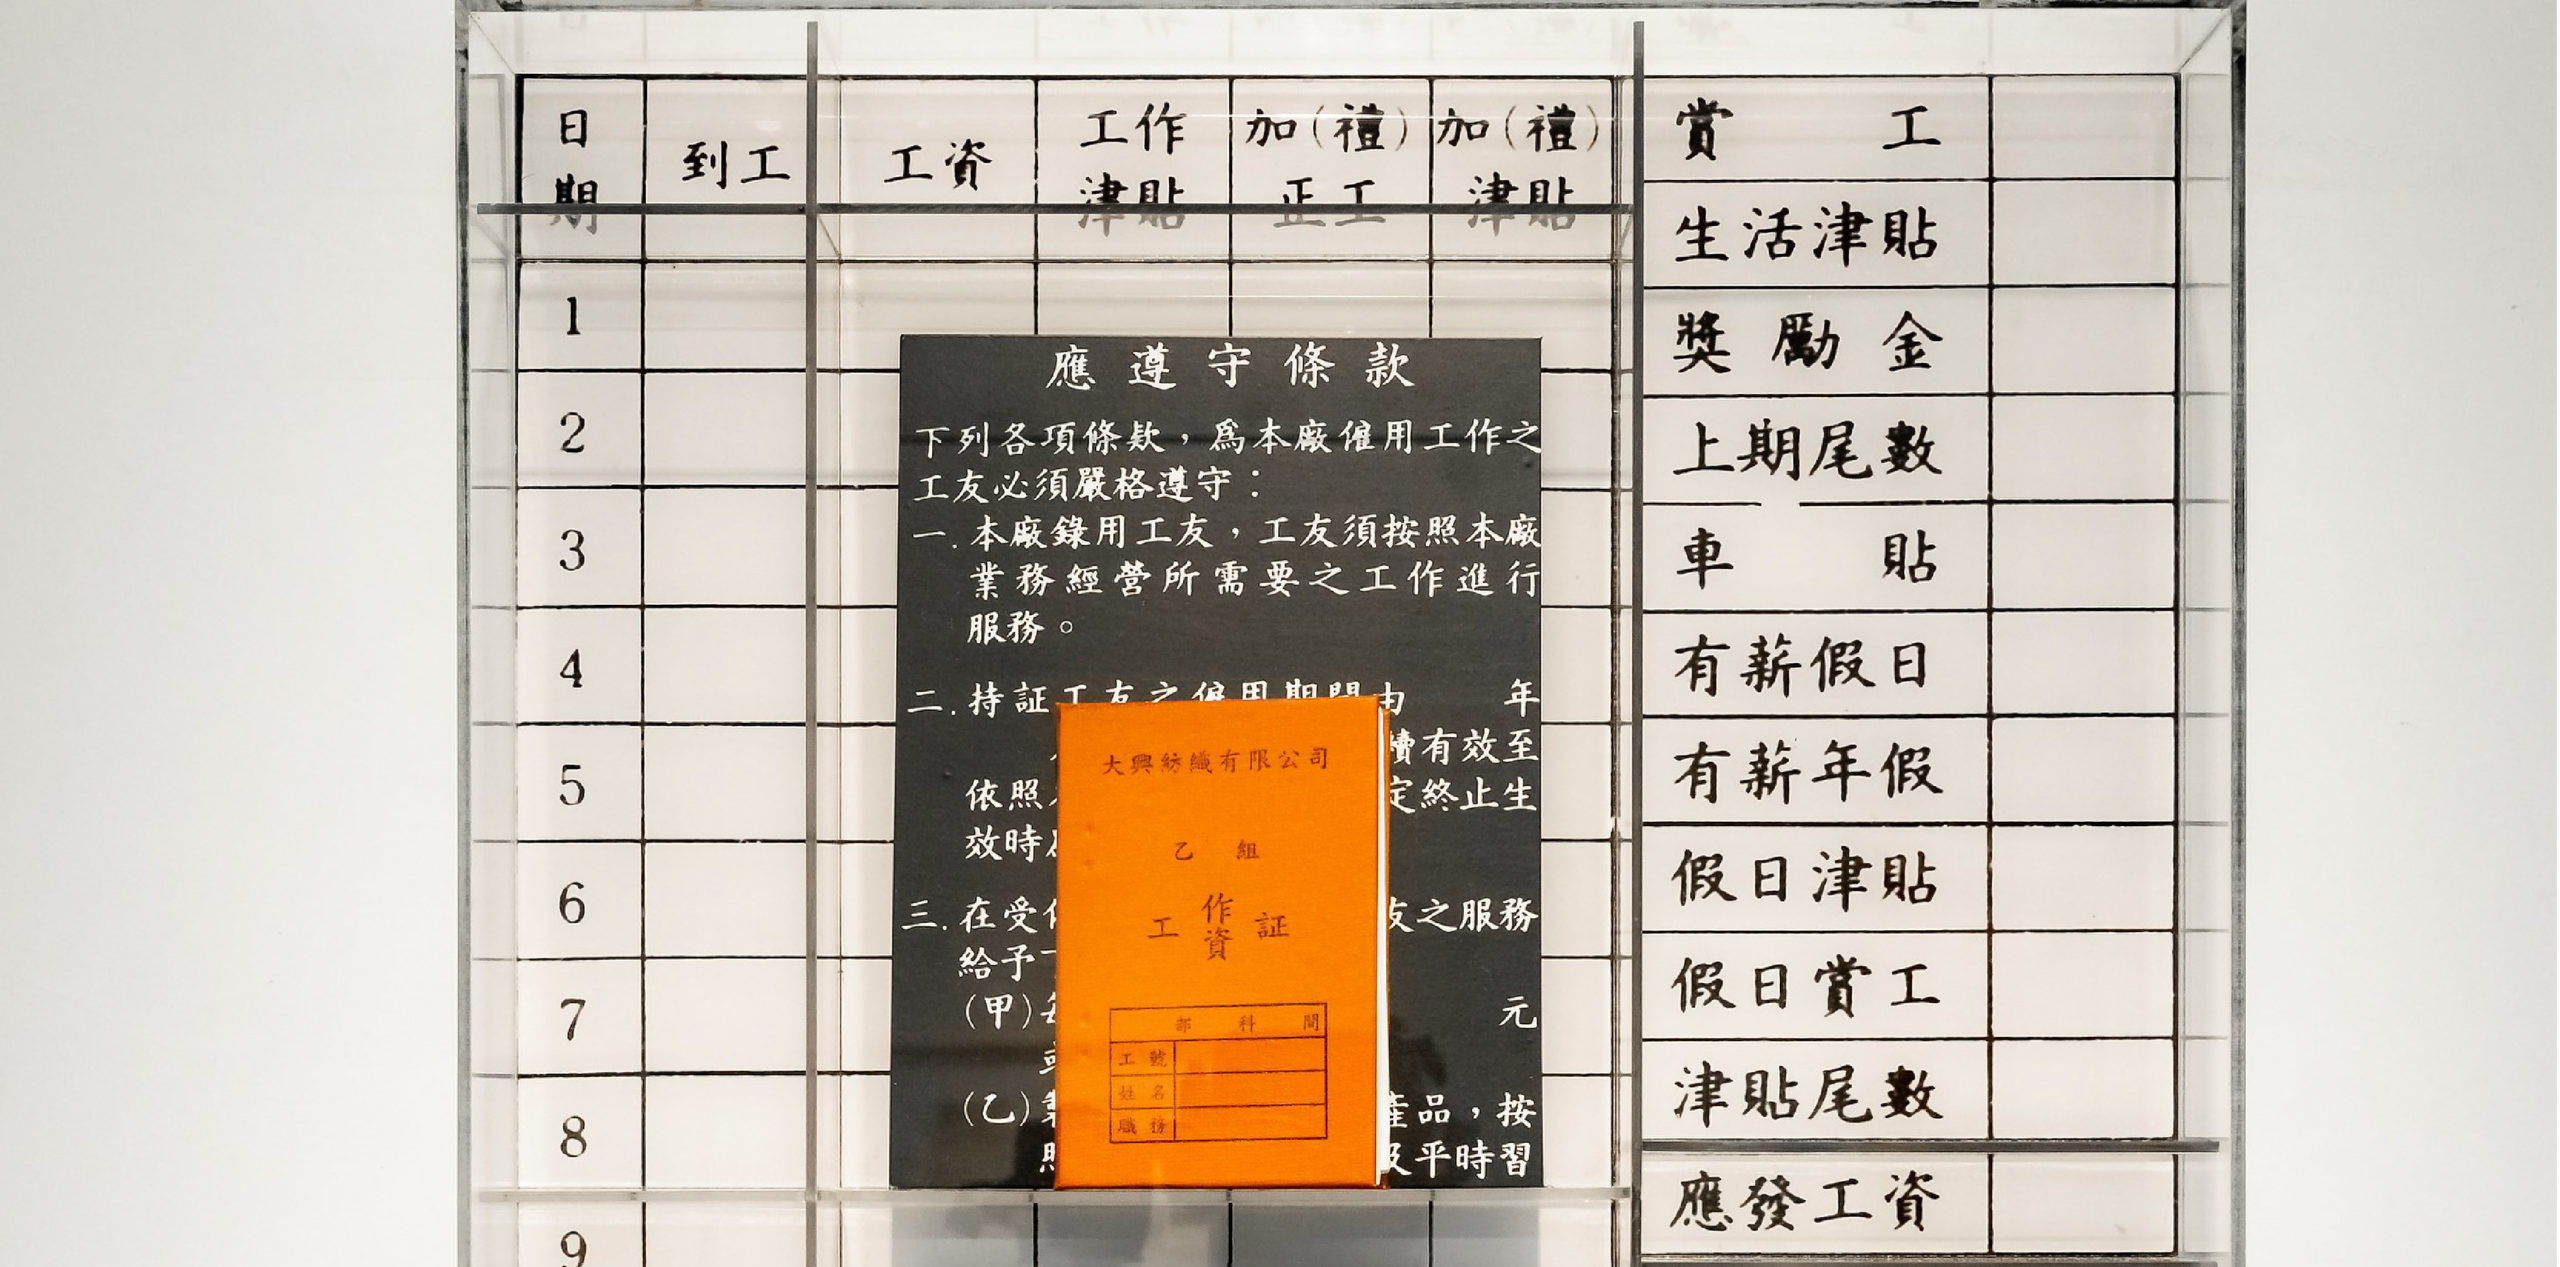 日期
到工
工資
工作津貼
加(禮)正工
加(禮)津貼
1
2
3
4
5
6
7
8
9
賞工
生活津貼
獎勵金
上期尾數
車貼
有薪假日
有薪年假
假日津貼
假日賞工
津貼尾數
應發工資
應遵守條款
下列各項條欵，爲本廠僱用工作之
工友必須嚴格遵守：
一.本廠錄用工友，工友須按照本廠
業務經營所需要之工作進行
服務。
二.持証工友之僱用期間由 年
續有效至
依照 定終止生
效時
三.在受 友之服務
給予
(甲) 元
(乙) 產品，按
及平時習
大興紡織有限公司
乙組
工作資証
部 科 間
工號
姓名
職務